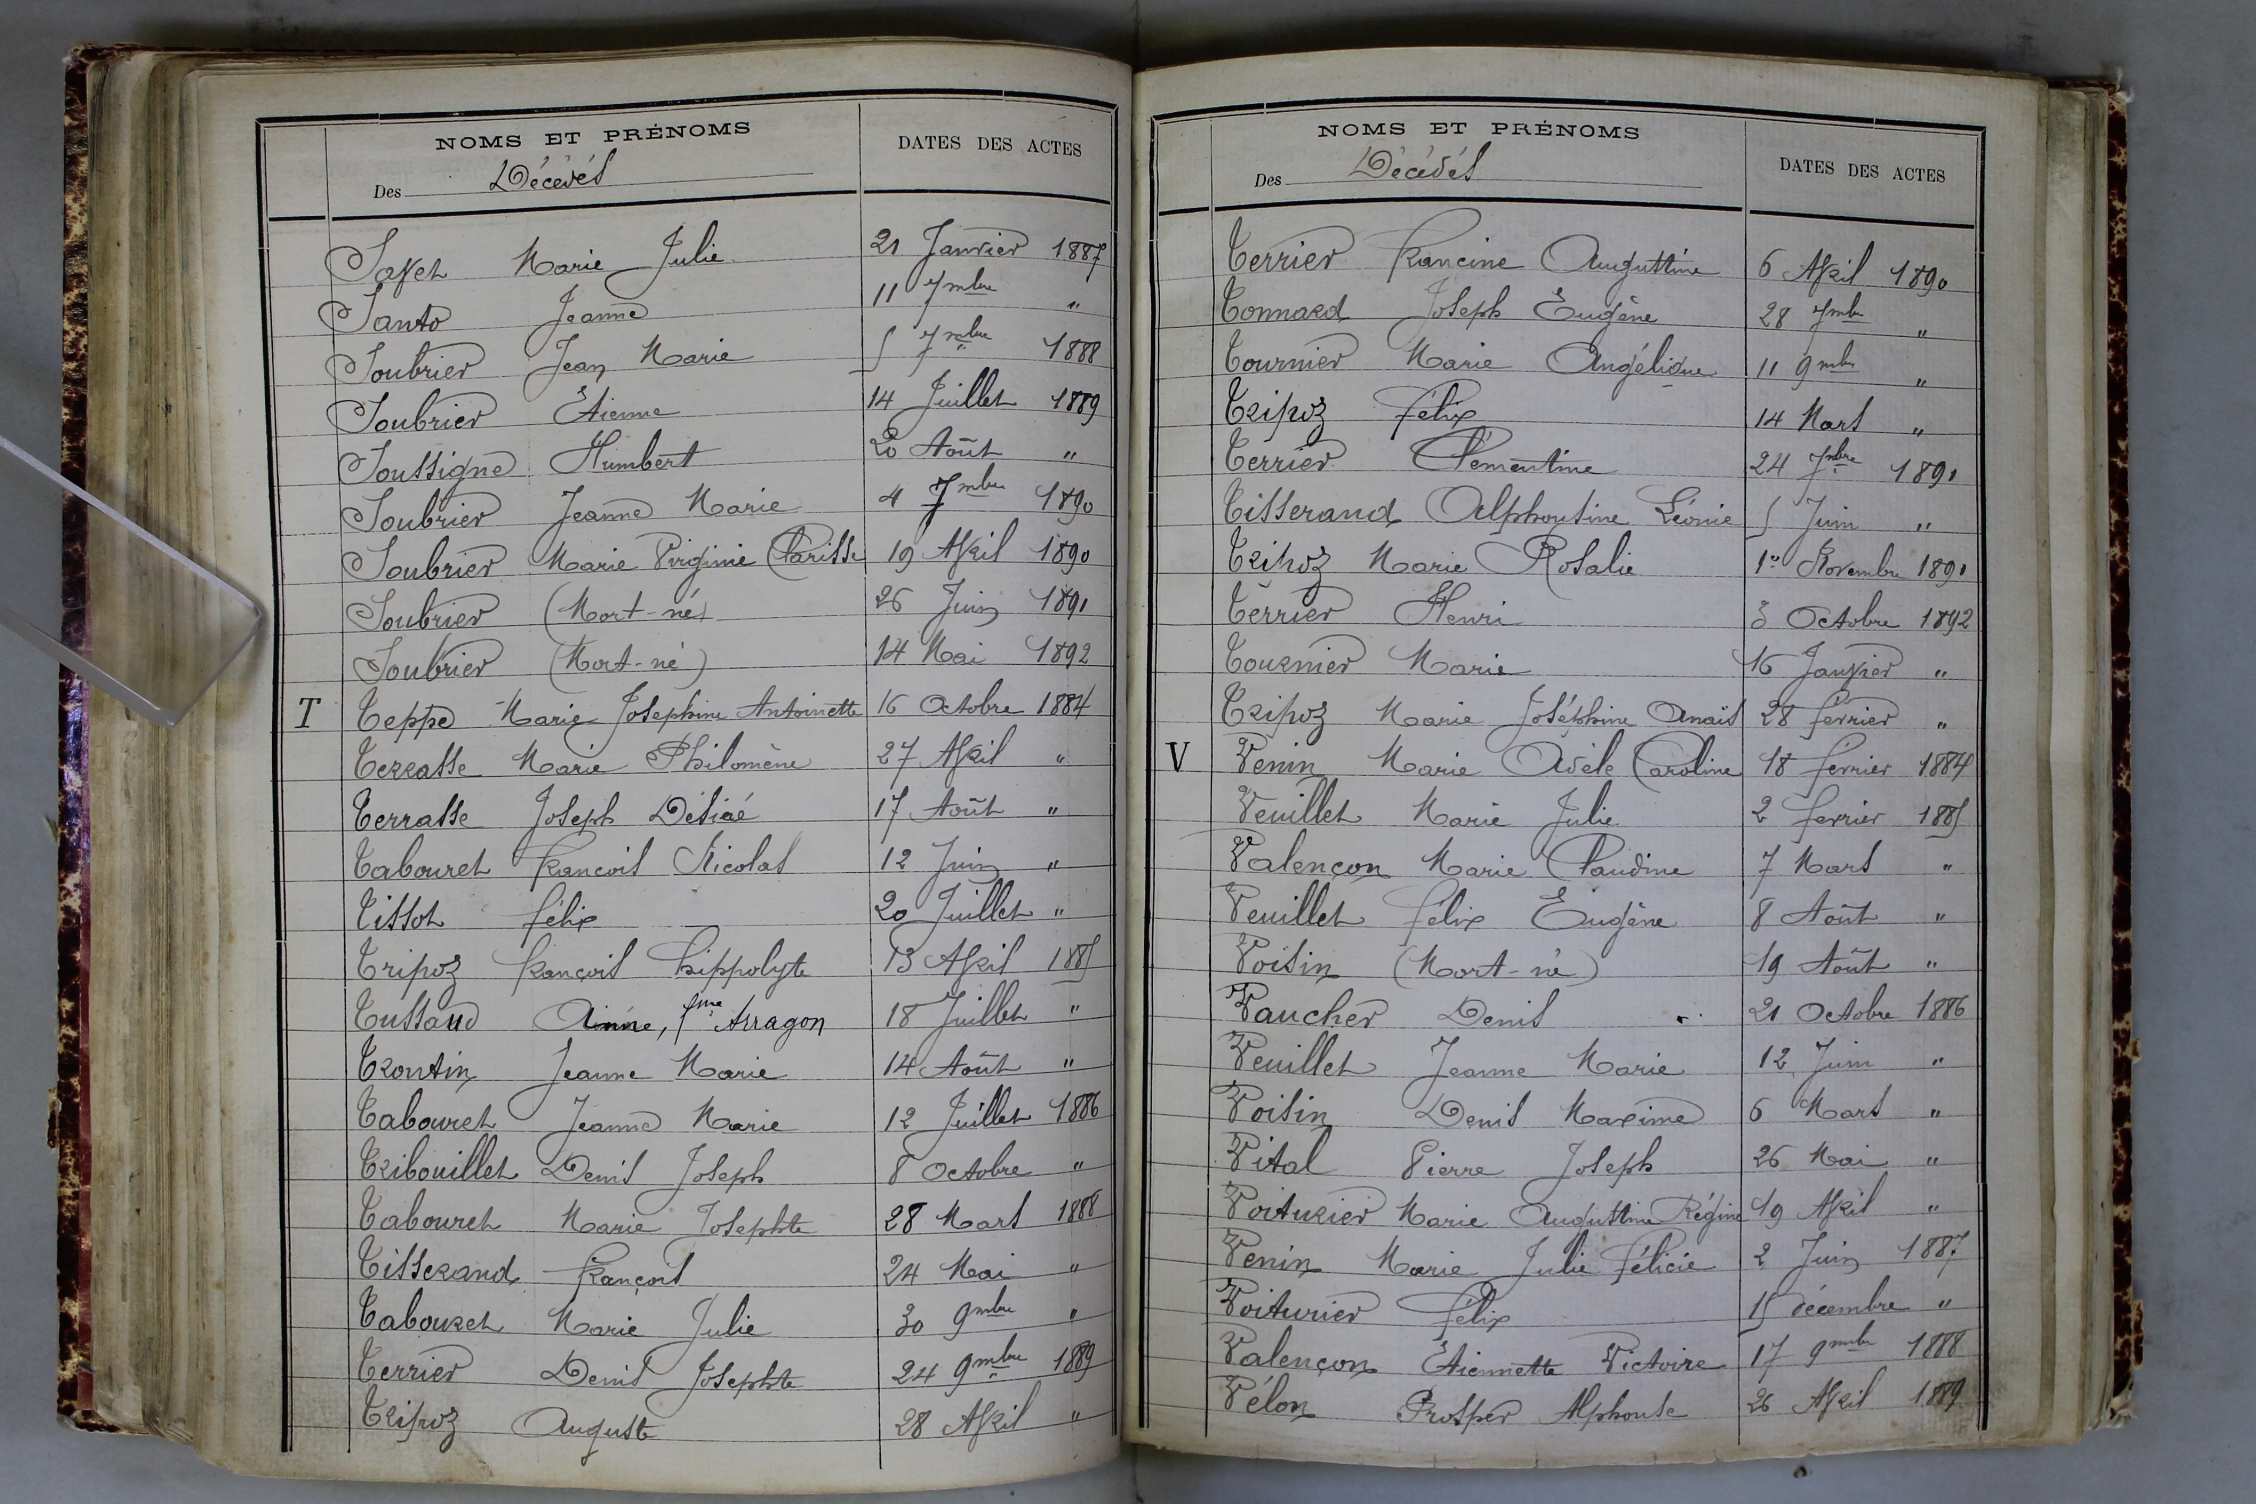 NOMS ET PRÉNOMS DATES DES ACTES
Des Décédés
Savet Marie Julie 21 Janvier 1887
Santo Jeanne 11 7mbre "
Soubrier Jean Marie 5 7mbre 1888
Soubrier Etienne 14 Juillet 1889
Soussigne Humbert 20 Août "
Soubrier Jeanne Marie 4 7mbre 1890
Soubrier Marie Virginie Clarisse 19 Avril 1890
Soubrier (Mort-né) 26 Juin 1891
Soubrier (Mort-né) 14 Mai 1892
T Teppe Marie Josephine Antoinette 16 Octobre 1884
Terrasse Marie Philomène 27 Avril "
Terrasse Joseph Désiré 17 Août "
Tabouret François Nicolas 12 Juin "
Tissot félix 20 Juillet "
Tripoz françois hippolyte 13 Avril 1885
Tussaud Ainée, fme Arragon 18 Juillet "
Trontin Jeanne Marie 14 Août "
Tabouret Jeanne Marie 12 Juillet 1886
Tribouillet Denis Joseph 8 Octobre "
Tabouret Marie Josephte 28 Mars 1888
Tisserand françois 24 Mai "
Tabouret Marie Julie 30 9mbre "
Terrier Denis Josephte 24 9mbre 1889
Tripoz Auguste 28 Avril "
NOMS ET PRÉNOMS DATES DES ACTES
Des Décédés
Terrier francine Augustine 6 Avril 1890
Tonnard Joseph Eugène 28 7mbre "
Tournier Marie Angélique 11 9mbre "
Tripoz félix 14 Mars "
Terrier Clémentine 24 7mbre 1891
Tisserand Alphonsine Léonie 5 Juin "
Tripoz Marie Rosalie 1er Novembre 1891
Terrier Henri 3 Octobre 1892
Tournier Marie 16 Janvier "
Tripoz Marie Joséphine Anaïs 28 février "
V Venin Marie Adèle Caroline 18 février 1884
Veuillet Marie Julie 2 fevrier 1885
Valençon Marie Claudine 7 Mars "
Veuillet félix Eugène 8 Août "
Voisin (Mort-né) 19 Août "
Vaucher Denis 21 Octobre 1886
Veuillet Jeanne Marie 12 Juin "
Voisin Denis Maxime 6 Mars "
Vital Pierre Joseph 26 Mai "
Voiturier Marie Augustine Régine 19 Avril "
Venin Marie Julie félicie 2 Juin 1887
Voiturier félix 15 décembre "
Valençon Etiennette Victoire 17 9mbre 1888
Vélon Prosper Alphonse 26 Avril 1889